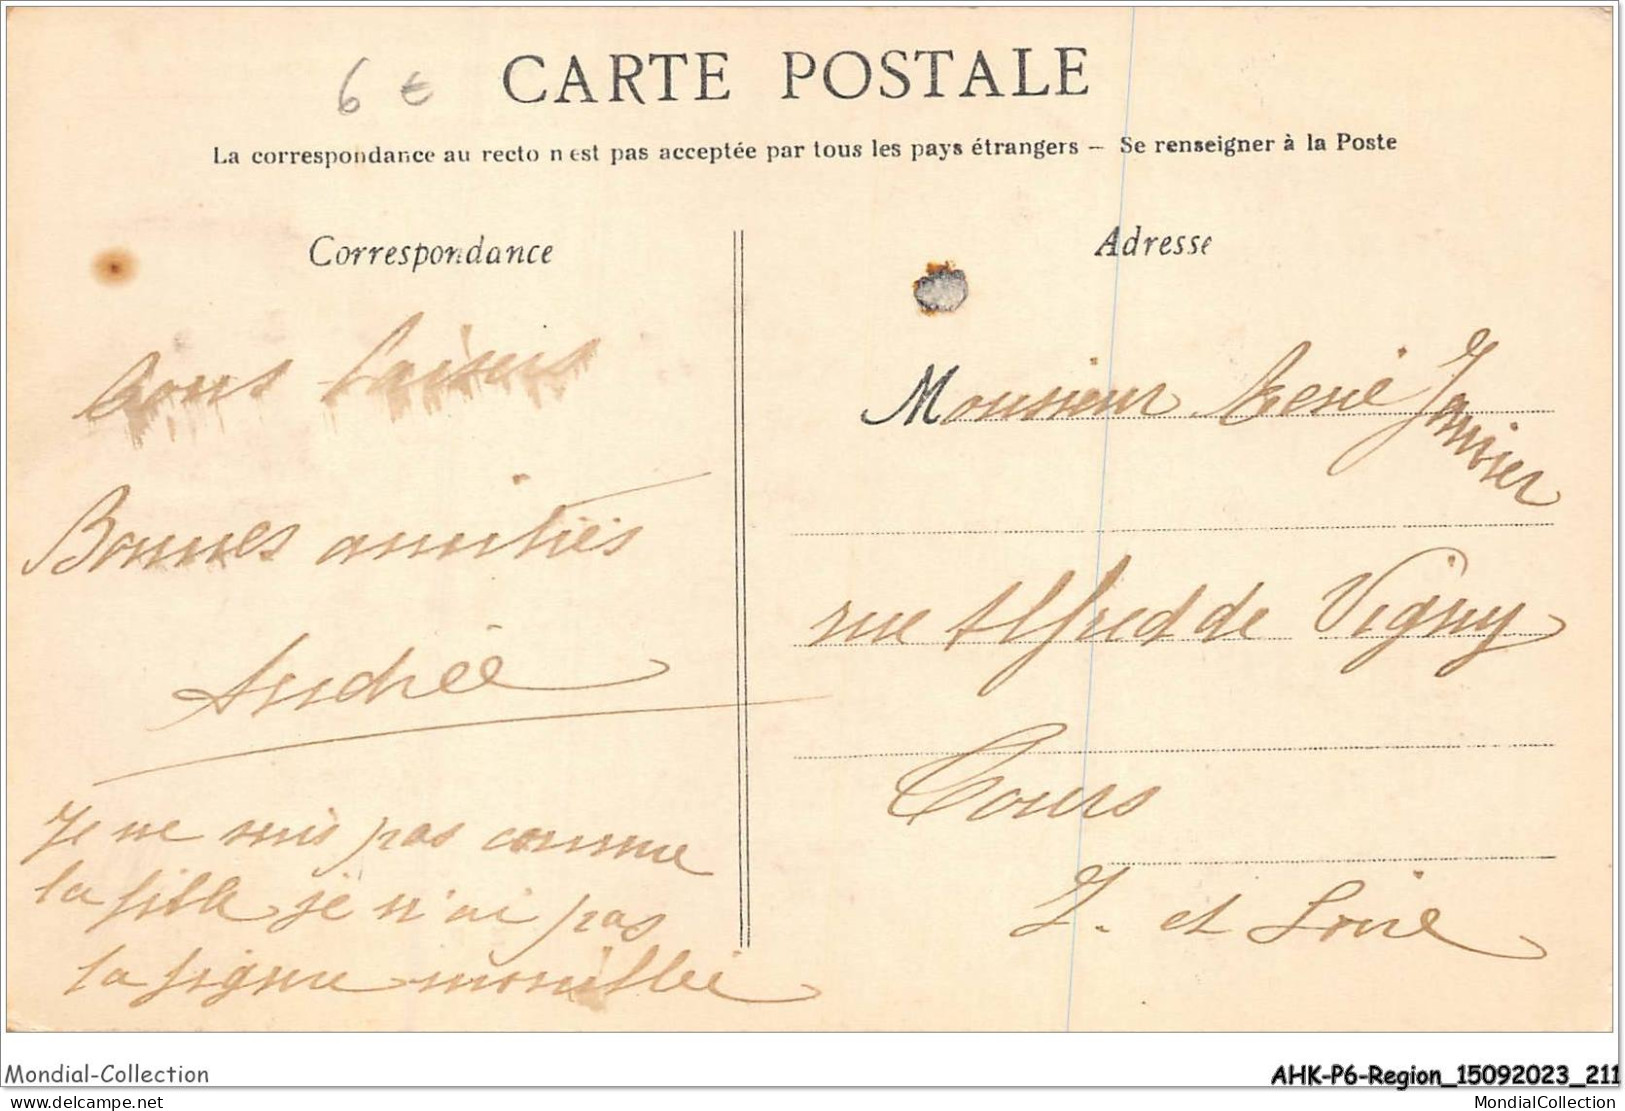 6 €
CARTE POSTALE
La correspondance au recto n'est pas acceptée par tous les pays étrangers – Se renseigner à la Poste
Correspondance
bons baisers
Bonnes amitiés
Andrée
Je ne suis pas comme
la fille je n'ai pas
la figure mouillée
Adresse
Monsieur René Janvier
rue Alfred de Vigny
Tours
I. et Loire
Mondial-Collection
AHK-P6-Region_15092023_211
delcampe.net
MondialCollection